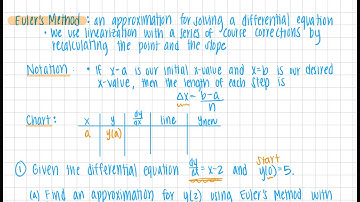 Euler's Method: an approximation for solving a differential equation
• We use linearization with a series of course corrections by
recalculating the point and the slope
Notation: • If x=a is our initial x-value and x=b is our desired
x-value, then the length of each step is
Δx = b-a/n
Chart: x y dy/dx line ynew
a y(a)
start
① Given the differential equation dy/dx = x-2 and y(0)=5.
(a) Find an approximation for y(2) using Euler's Method with